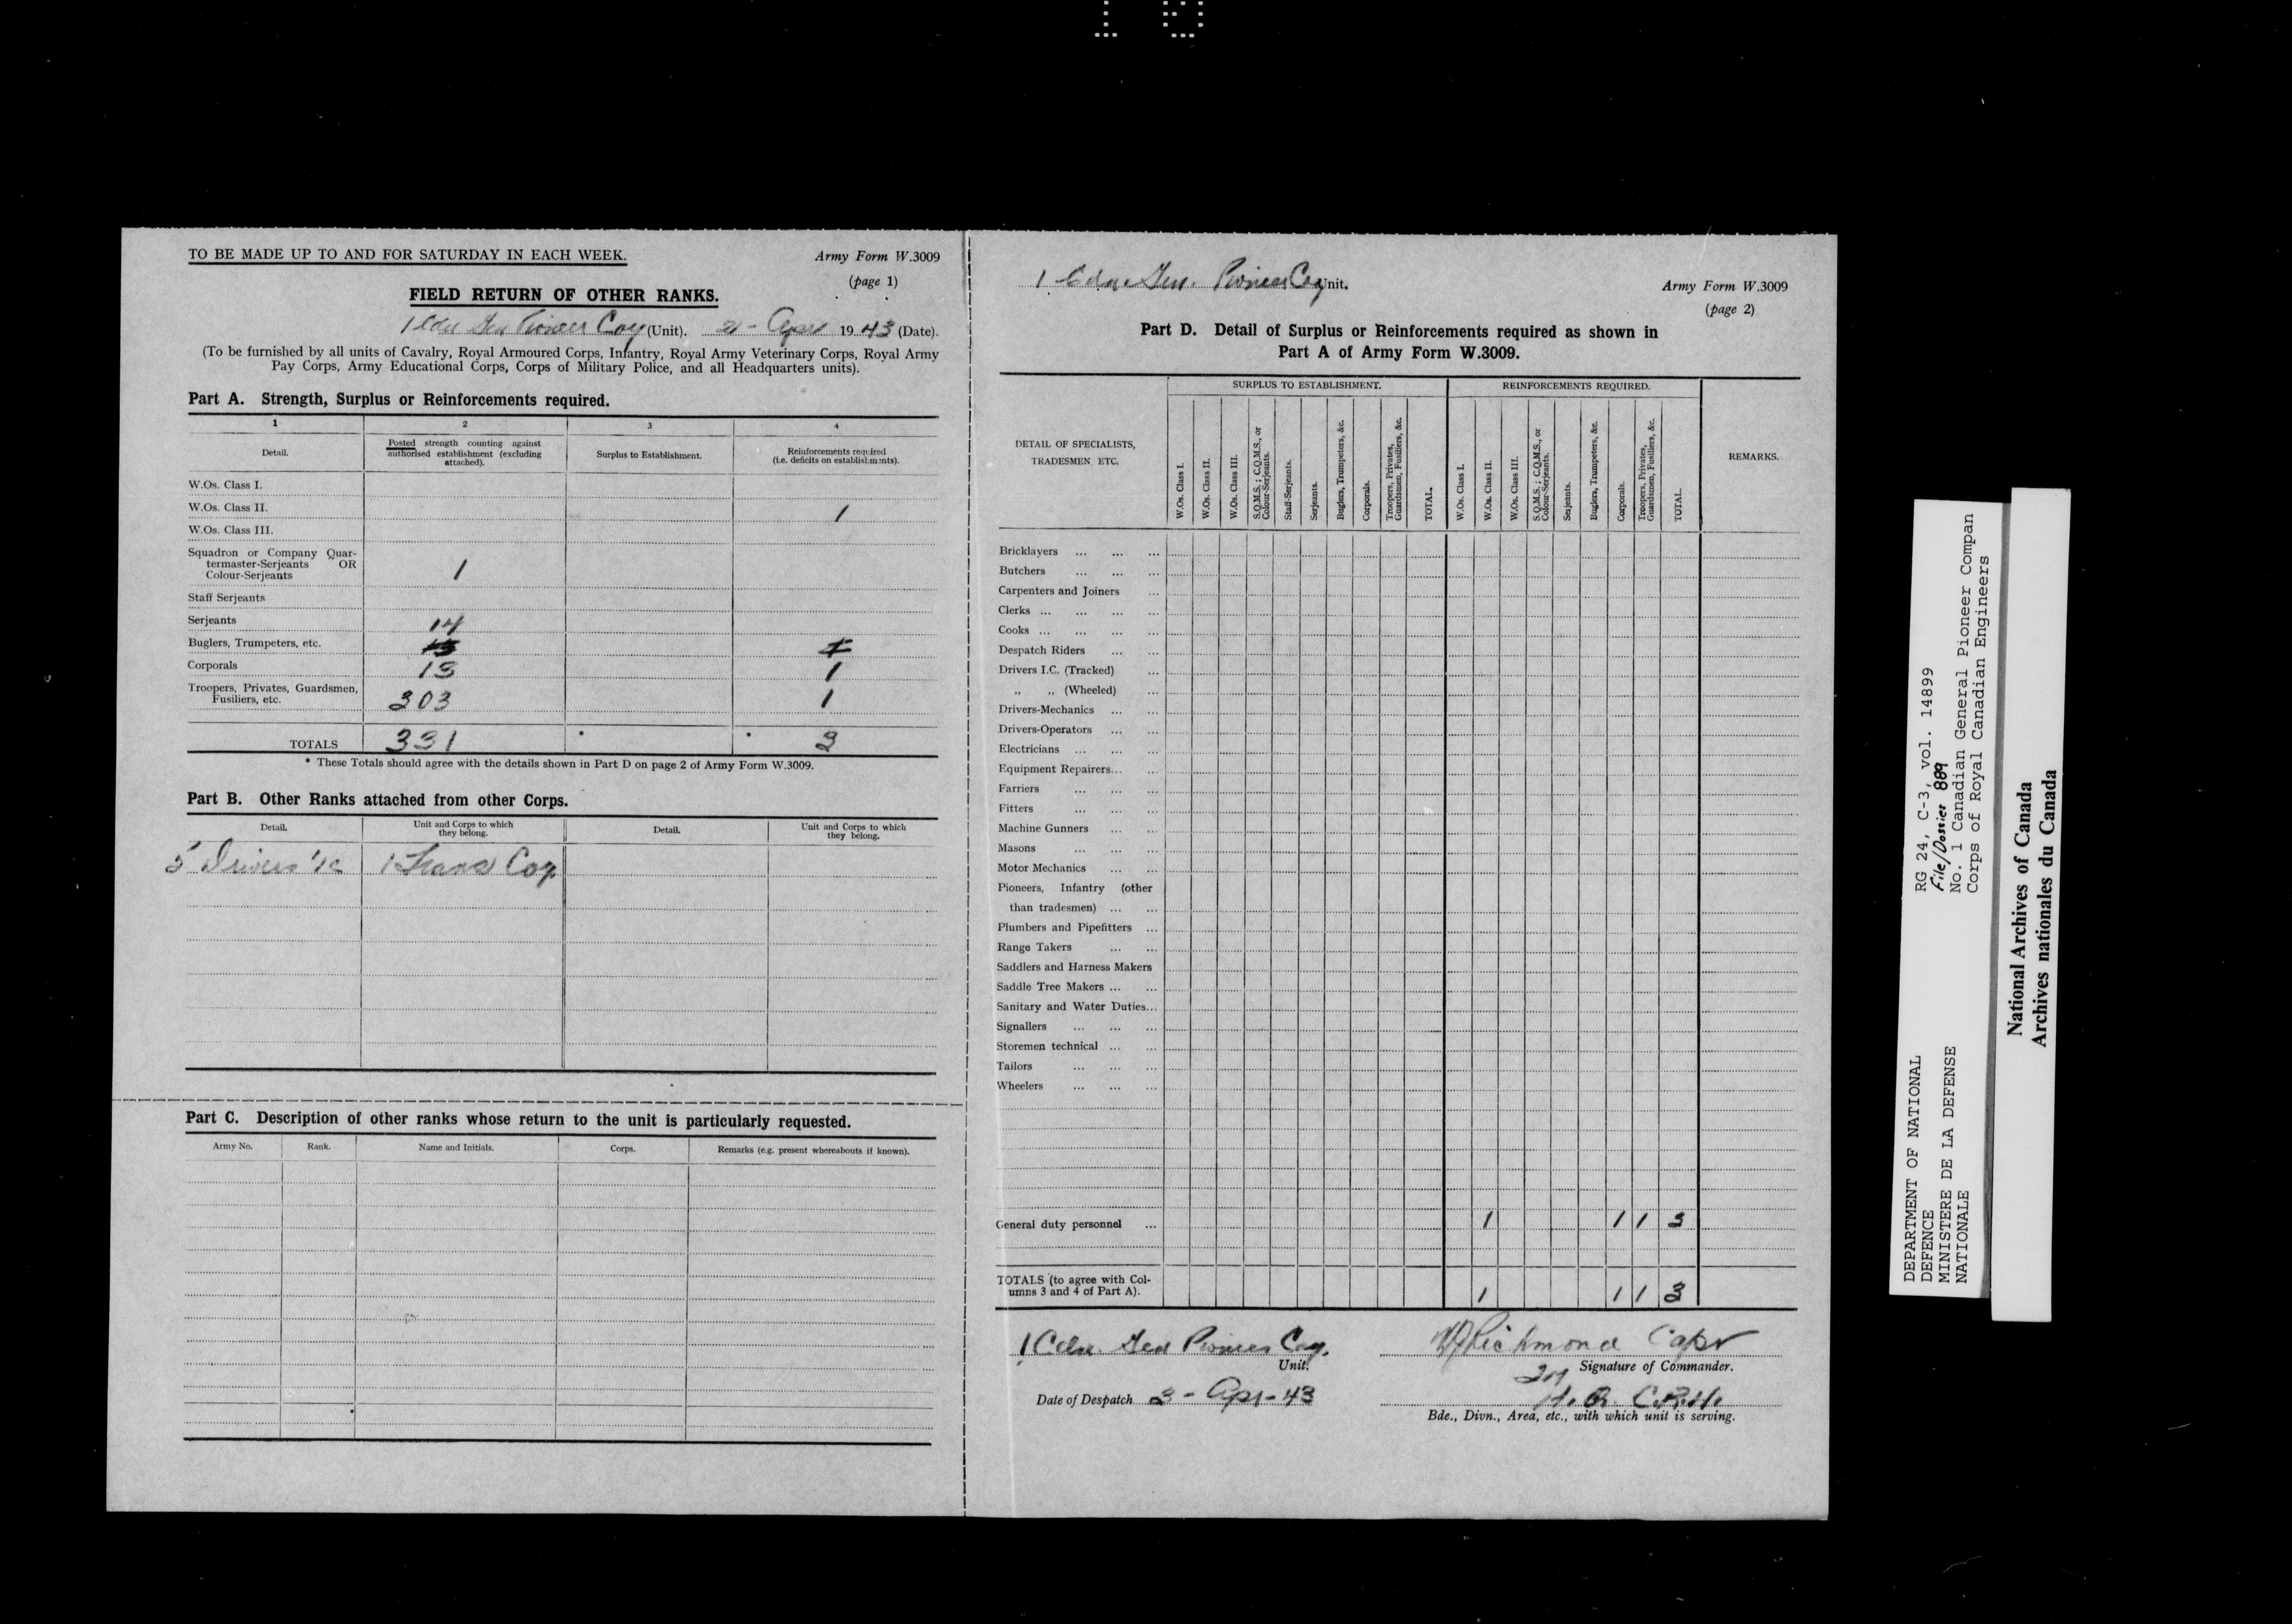 TO BE MADE UP TO AND FOR SATURDAY IN EACH WEEK.
Army Form W.3009
(page 1)
FIELD RETURN OF OTHER RANKS.
1 Cdn Gen Pioneer Coy (Unit). Apr 1943 (Date).
(To be furnished by all units of Cavalry, Royal Armoured Corps, Infantry, Royal Army Veterinary Corps, Royal Army
Pay Corps, Army Educational Corps, Corps of Military Police, and all Headquarters units).
Part A. Strength, Surplus or Reinforcements required.
1 2 3 4
Detail.
Posted strength counting against
authorised establishment (excluding
attached).
Surplus to Establishment.
Reinforcements required
(i.e. deficits on establishments).
W.Os. Class I.
W.Os. Class II. 1
W.Os. Class III.
Squadron or Company Quar-
termaster-Serjeants OR
Colour-Serjeants 1
Staff Serjeants
Serjeants 14
Buglers, Trumpeters, etc.
Corporals 13 1
Troopers, Privates, Guardsmen,
Fusiliers, etc. 303 1
TOTALS 331 * * 3
* These Totals should agree with the details shown in Part D on page 2 of Army Form W.3009.
Part B. Other Ranks attached from other Corps.
Detail.
Unit and Corps to which
they belong.
Detail.
Unit and Corps to which
they belong.
5 Drivers i/c 1 Trans Coy
Part C. Description of other ranks whose return to the unit is particularly requested.
Army No. Rank. Name and Initials. Corps. Remarks (e.g. present whereabouts if known).
1 Cdn Gen. Pioneer Coy Unit.
Army Form W.3009
(page 2)
Part D. Detail of Surplus or Reinforcements required as shown in
Part A of Army Form W.3009.
DETAIL OF SPECIALISTS,
TRADESMEN ETC.
SURPLUS TO ESTABLISHMENT.
W.Os. Class I.
W.Os. Class II.
W.Os. Class III.
S.Q.M.S.; C.Q.M.S., or
Colour-Serjeants.
Staff-Serjeants.
Serjeants.
Buglers, Trumpeters, &c.
Corporals.
Troopers, Privates,
Guardsmen, Fusiliers, &c.
TOTAL.
REINFORCEMENTS REQUIRED.
W.Os. Class I.
W.Os. Class II.
W.Os. Class III.
S.Q.M.S.; C.Q.M.S., or
Colour-Serjeants.
Serjeants.
Buglers, Trumpeters, &c.
Corporals.
Troopers, Privates,
Guardsmen, Fusiliers, &c.
TOTAL.
REMARKS.
Bricklayers ... ... ...
Butchers ... ... ...
Carpenters and Joiners ...
Clerks ... ... ... ...
Cooks ... ... ... ...
Despatch Riders ... ...
Drivers I.C. (Tracked) ...
„ „ (Wheeled) ...
Drivers-Mechanics ... ...
Drivers-Operators ... ...
Electricians ... ... ...
Equipment Repairers... ...
Farriers ... ... ...
Fitters ... ... ...
Machine Gunners ... ...
Masons ... ... ...
Motor Mechanics ... ...
Pioneers, Infantry (other
than tradesmen) ... ...
Plumbers and Pipefitters ...
Range Takers ... ...
Saddlers and Harness Makers
Saddle Tree Makers ... ...
Sanitary and Water Duties...
Signallers ... ... ...
Storemen technical ... ...
Tailors ... ... ...
Wheelers ... ... ...
General duty personnel ... 1 1 1 3
TOTALS (to agree with Col-
umns 3 and 4 of Part A). 1 1 1 3
1 Cdn. Gen Pioneer Coy.
Unit.
Richmond Capt
Signature of Commander.
Date of Despatch 3 - Apr - 43
Bde., Divn., Area, etc., with which unit is serving.
DEPARTMENT OF NATIONAL
DEFENCE
MINISTERE DE LA DEFENSE
NATIONALE
RG 24, C-3, vol. 14899
File/Dossier 889
No. 1 Canadian General Pioneer Compan
Corps of Royal Canadian Engineers
National Archives of Canada
Archives nationales du Canada